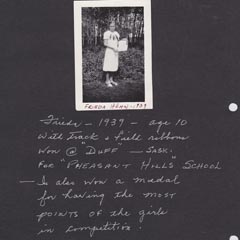 FRIEDA HEHN - 1939
Frieda — 1939 — age 10
With Track & Field ribbons
Won @ "DUFF" — SASK.
FOR "PHEASANT HILLS" SCHOOL
— Is also won a medal
for having the most
points of the girls
in competition!